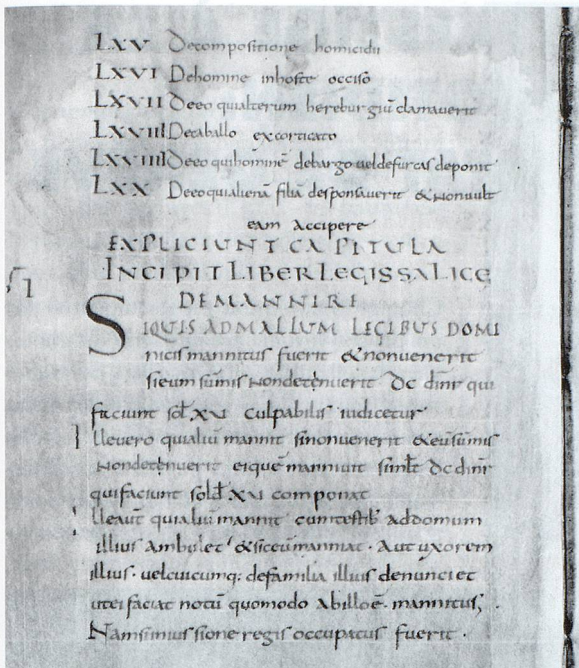 LXV Decompositione homicidii
LXVI Dehomine inhoste occiso
LXVII Deeo quialterum hereburgiū clamaverit
LXVIII Decaballo excorticato
LXVIIII Deeo quihominē debargo veldefurcas deponit
LXX Deeo quialienā filiā desponsaverit &nonvult
eam accipere
EXPLICIUNT CAPITULA
INCIPIT LIBER LEGIS SALICE
DEMANNIRE
SIQUIS ADMALLUM LEGIBUS DOMI
nicis mannitus fuerit &nonvenerit
sieum sūnis nondetenuerit dc dinr qui
faciunt sol XV culpabilis iudicetur
Illevero quialiū mannit sinonvenerit &eūsūnis
nondetenuerit eiquē mannivit similt dc dinr
quifaciunt sold XV componat
Illeaut quialiū mannit cumtestib addomum
illius ambulet &siceūmanniat. Aut uxorem
illius. velcuicumq: defamilia illius denunciet
utei faciat notū quomodo abilloē. mannitus;
Namsiniussione regis occupatus fuerit.